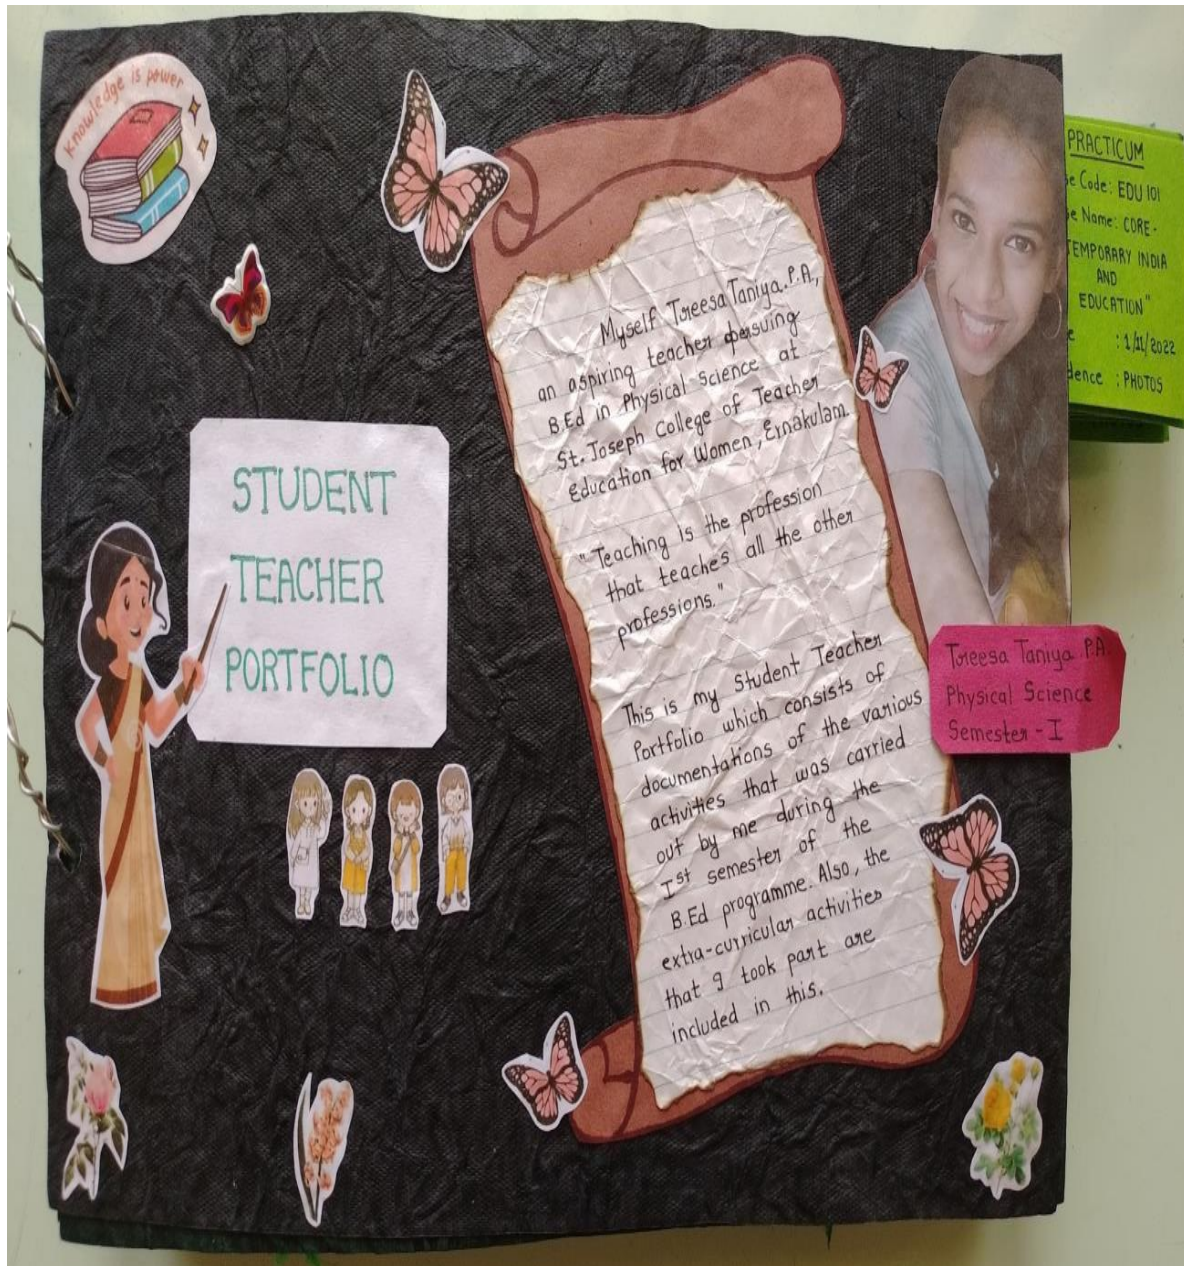 Knowledge is power
STUDENT
TEACHER
PORTFOLIO
Myself Treesa Taniya.P.A,
an aspiring teacher persuing
B.Ed in Physical Science at
St. Joseph College of Teacher
Education for Women, Ernakulam.
"Teaching is the profession
that teaches all the other
professions."
This is my Student Teacher
Portfolio which consists of
documentations of the various
activities that was carried
out by me during the
Ist semester of the
B.Ed programme. Also, the
extra-curricular activities
that I took part are
included in this.
Treesa Taniya P.A.
Physical Science
Semester - I
PRACTICUM
Code: EDU 101
Name: CORE-
TEMPORARY INDIA
AND
EDUCATION"
: 1/11/2022
: PHOTOS